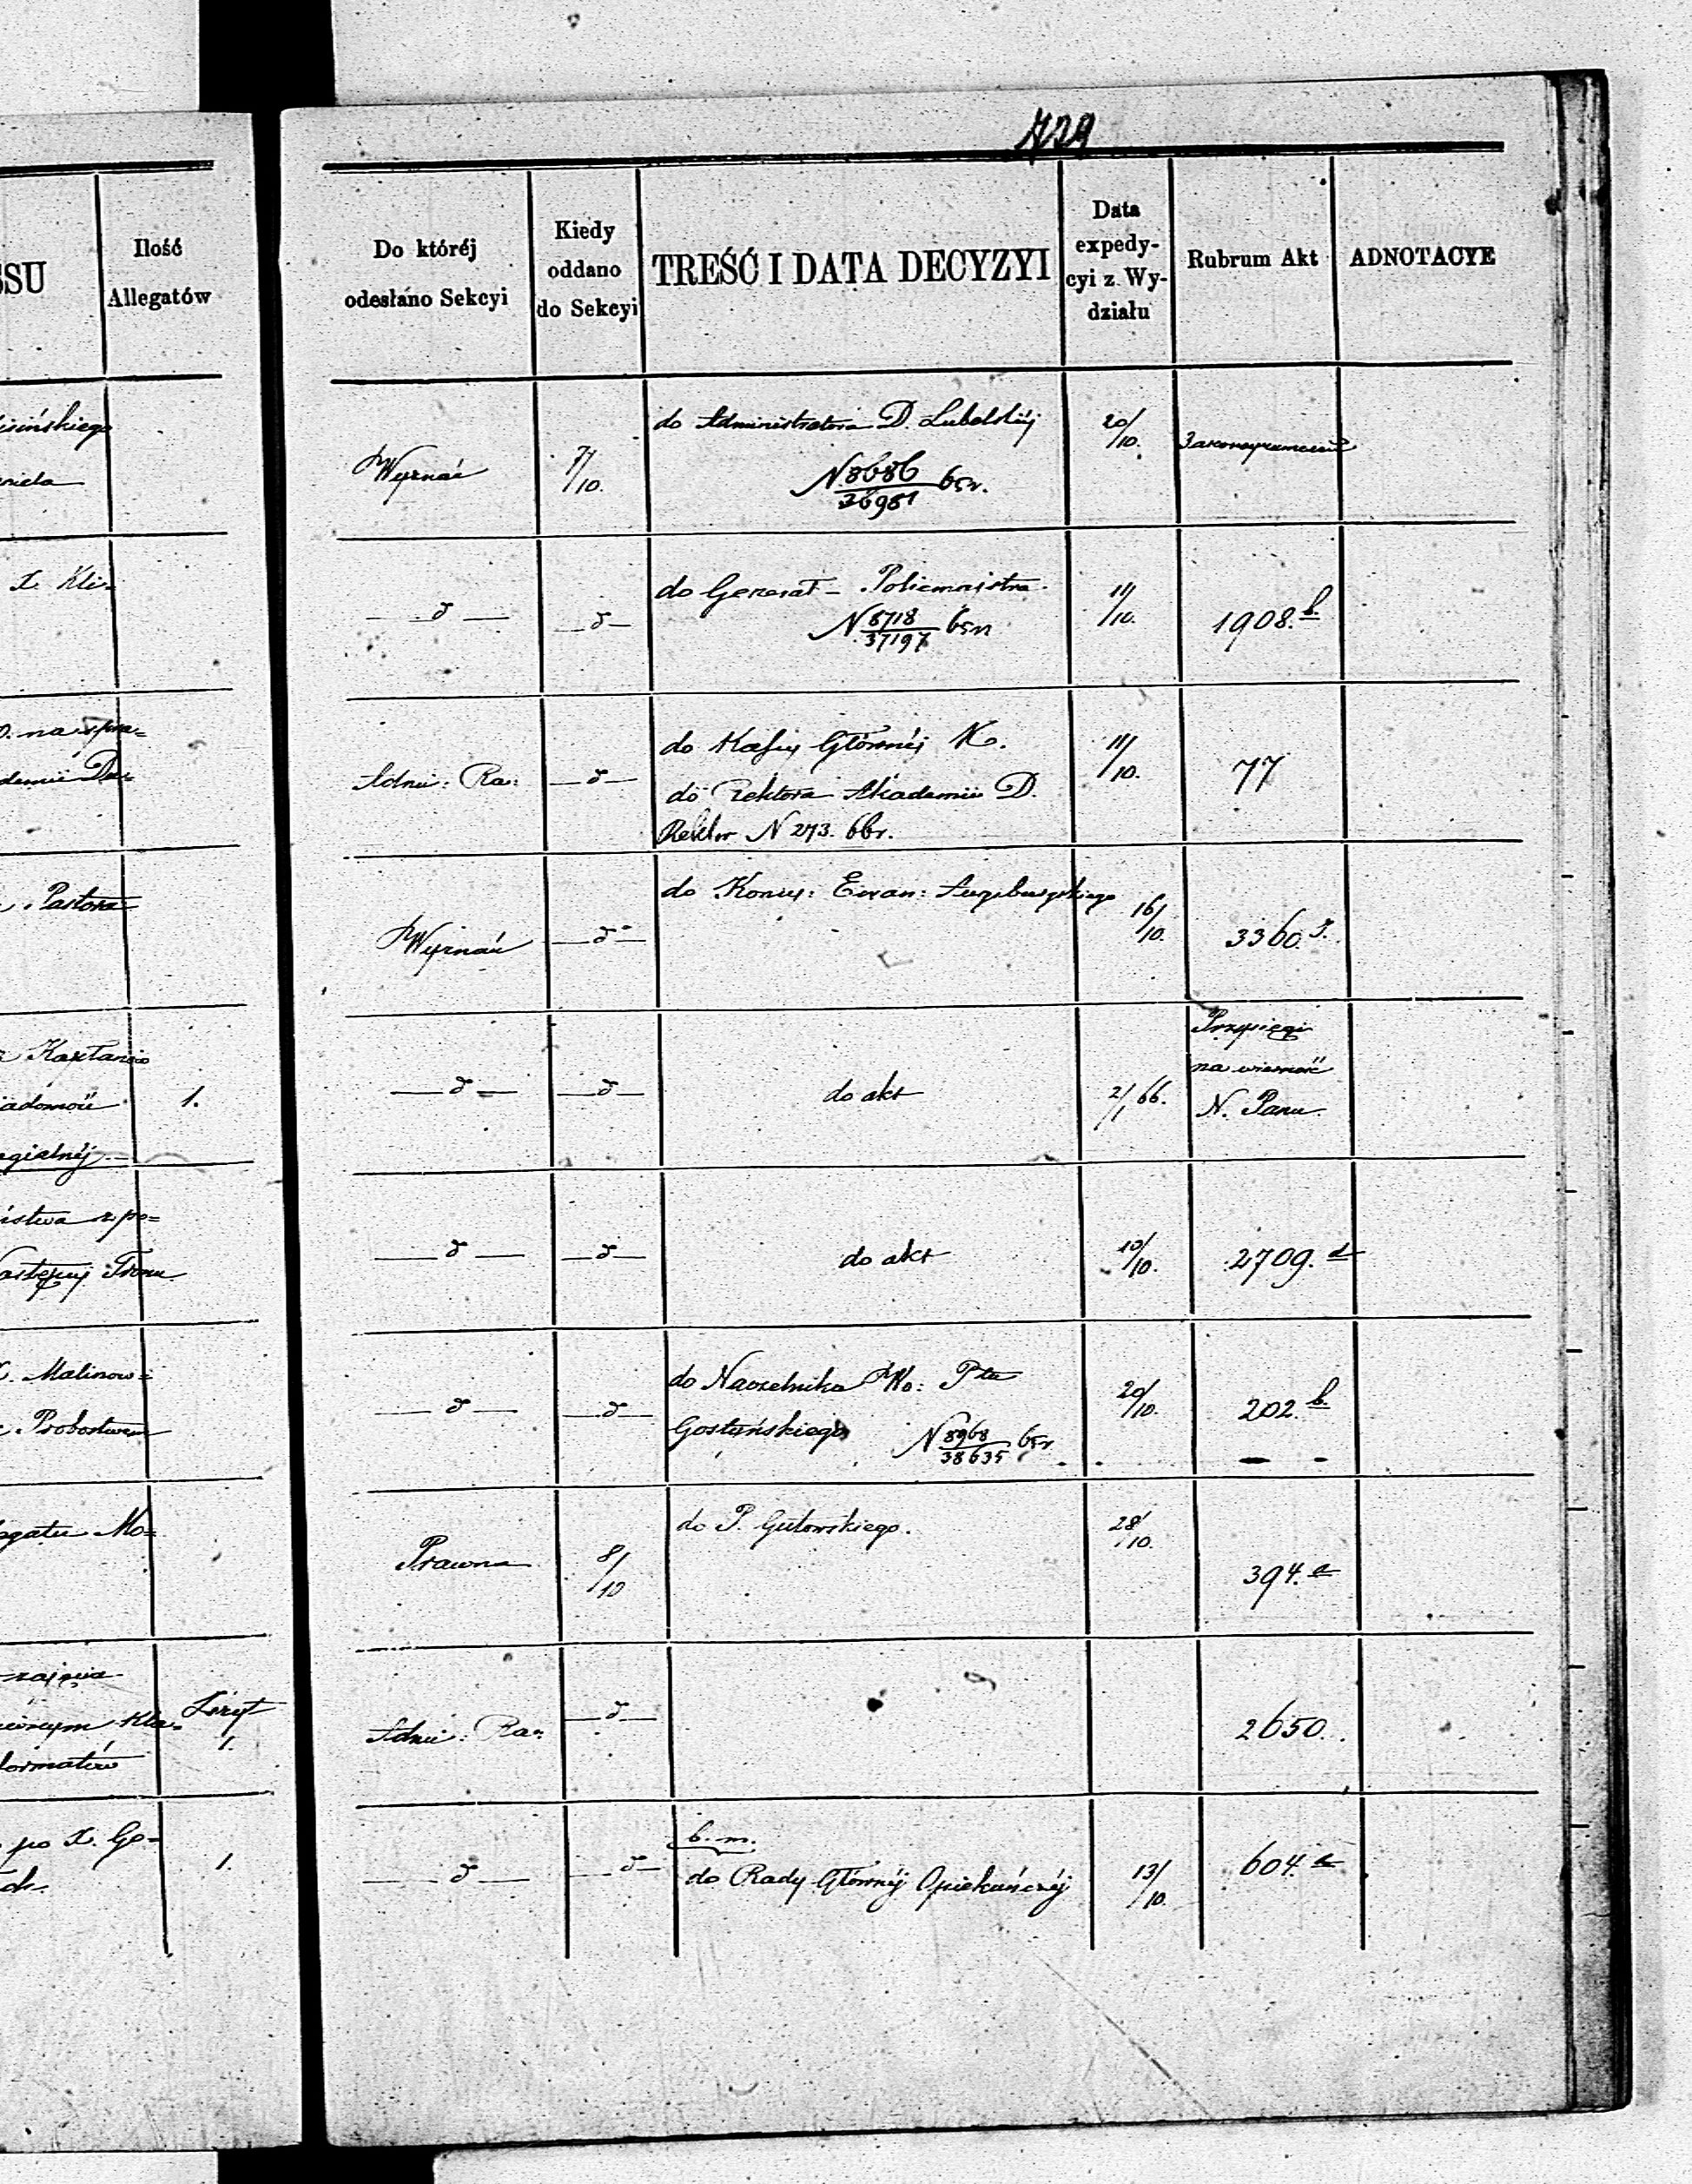 729
SSU
Ilość
Allegatów
Do któréj
odesłano Sekcyi
Kiedy
oddano
do Sekcyi
TREŚĆ I DATA DECYZYI
Data
expedy-
cyi z Wy-
działu
Rubrum Akt
ADNOTACYE
Wyznań
7/10.
do Administratora D. Lubelskiéj
N 8686/36981 65r.
20/10.
X. Kli=
—d—
—d—
do Generał-Policmajstra.
N 8718/37197 65r
11/10.
1908.b.
Adm: Ra:
—d—
do Kassy Głównéj K.
do Rektora Akademii D.
Rektor N 273. 66r.
11/10.
77
Pastora
Wyznań
—d—
do Konsy: Ewan: Augsburgskiego
16/10.
3360.
1.
—d—
—d—
do akt
2/1 66.
Przysięgi
na wierność
N. Panu.
istwa z po=
Następcy Tronu
—d—
—d—
do akt
10/10.
2709.
X. Malinow=
Probostwem
—d—
—d—
do Naczelnika Wo: Ptu
Gostyńskiego N 8968/38635 65r
20/10.
202.b.
Mo=
Prawna
8/10
do P. Gutowskiego.
28/10.
394.a
zajęcia
Kla=
1.
Adm: Ra:
—d—
2650.
po X. Go=
1.
—d—
—d—
b. m.
do Rady Głównéj Opiekuńczéj
13/10.
604.a